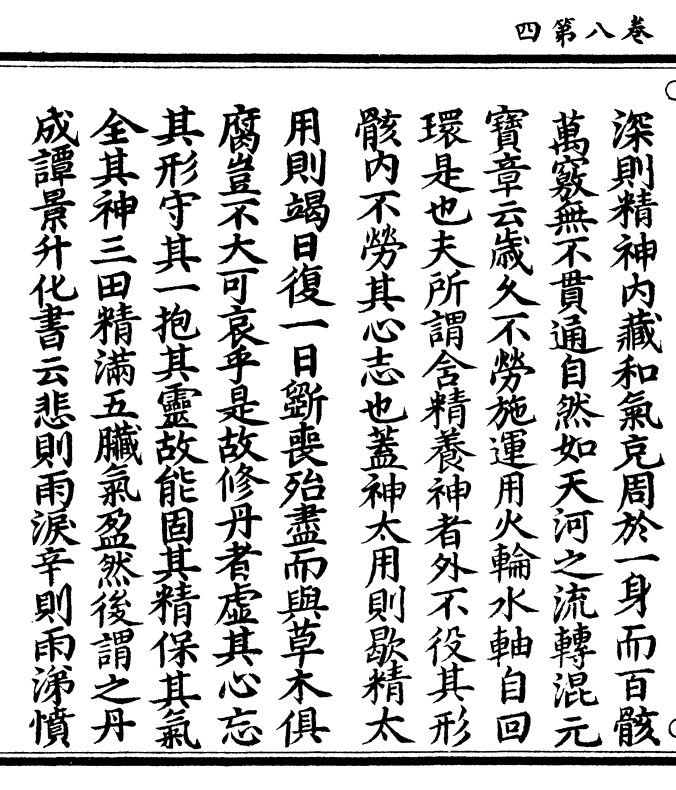 卷八第四
深則精神内藏和氣充周於一身而百骸
萬竅無不貫通自然如天河之流轉混元
寶章云歲久不勞施運用火輪水軸自回
環是也夫所謂舍精養神者外不役其形
骸内不勞其心志也蓋神太用則歇精太
用則竭日復一日斵喪殆盡而與草木俱
腐豈不大可哀乎是故修丹者虛其心忘
其形守其一抱其靈故能固其精保其氣
全其神三田精滿五臟氣盈然後謂之丹
成譚景升化書云悲則雨淚辛則雨涕憤